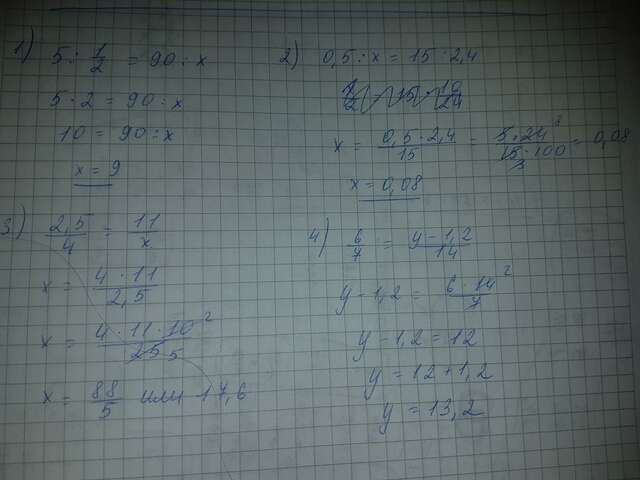 1) 5 : 1/2 = 90 : x
5 · 2 = 90 : x
10 = 90 : x
x = 9
2) 0,5 : x = 15 : 2,4
x = 0,5 · 2,4 / 15 = 5 · 24 8 / 15 3 · 100 = 0,08
x = 0,08
3) 2,5 / 4 = 11 / x
x = 4 · 11 / 2,5
x = 4 · 11 · 10 2 / 25 5
x = 88 / 5 или 17,6
4) 6 / 7 = y - 1,2 / 14
y - 1,2 = 6 · 14 2 / 7
y - 1,2 = 12
y = 12 + 1,2
y = 13,2